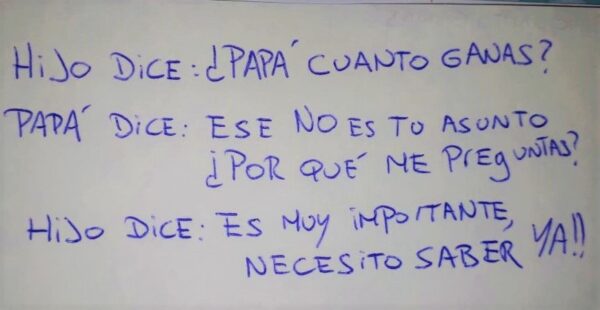 HIJO DICE: ¿PAPÁ CUANTO GANAS?
PAPÁ DICE: ESE NO ES TU ASUNTO
¿POR QUÉ ME PREGUNTAS?
HIJO DICE: ES MUY IMPORTANTE,
NECESITO SABER YA!!